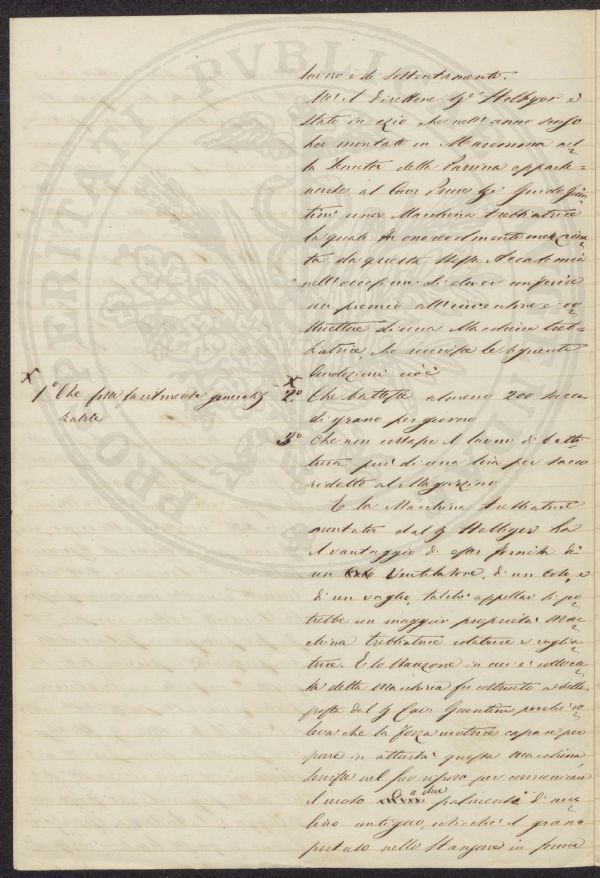 lavoro e di sostentamento.
Ma il Direttore Sig.r Stelliger è
stato in ozio che nell'anno
ha montato in Maremma
la Tenuta della Parrina apparte=
nente al Guido Giun=
tini una Macchina trebbiatrice
la quale fu onorevolmente menzio=
nata da questa stessa Accademia
nell'occasione di dover conferire
un premio all'inventore o co=
struttore di una Macchina treb=
biatrice, che riunisse le seguenti
Condizioni cioè
X 1° Che fosse facilmente generaliz
zabile
X 2° Che battesse almeno 200 sacca
di grano per giorno
3° Che non costasse il lavoro di batti=
tura più di una lira per sacco
ridotto al Magazzino
E la Macchina trebbiatrice
montata dal S. Stelliger ha
il vantaggio di esser fornita di
un Ventilatore, di un colo, e
di un vaglio, talchè appellar si po=
trebbe con maggior proprietà Mac=
china trebbiatrice colatrice e vaglia=
trice. E lo Stanzone in cui è colloca=
ta detta Macchina fu costruito
posta dal S. Cav. Giuntini perchè vo=
leva che la forza motrice capace per
porre in attività questa macchina
servisse nel suo riposo per comunicare
il moto a due palmenti di mu=
lino antiguo, cosicchè il grano
portato nello Stanzone in prima
PROSPERITATI PVBLICAE